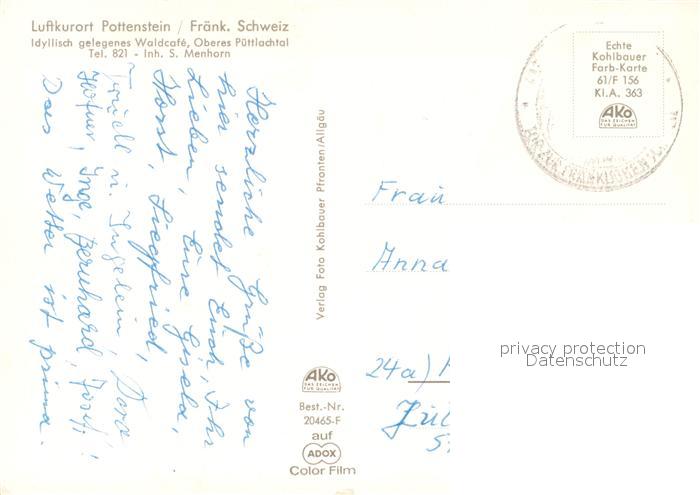 Luftkurort Pottenstein / Fränk. Schweiz
Idyllisch gelegenes Waldcafé, Oberes Püttlachtal
Tel. 821 - Inh. S. Menhorn
Herzliche Grüße von
hier sendet Euch, Ihr
Lieben, Eure Gisela,
Horst, Siegfried,
u. Ingelein, Dora
Inge, Bernhard,
Das Wetter ist prima.
Verlag Foto Kohlbauer Pfronten/Allgäu
AKO
DAS ZEICHEN
FÜR QUALITÄT
Best.-Nr.
20465-F
auf
ADOX
Color Film
Echte
Kohlbauer
Farb-Karte
61/F 156
Kl.A. 363
AKO
DAS ZEICHEN
FÜR QUALITÄT
Frau
Anna
24a)
privacy protection
Datenschutz